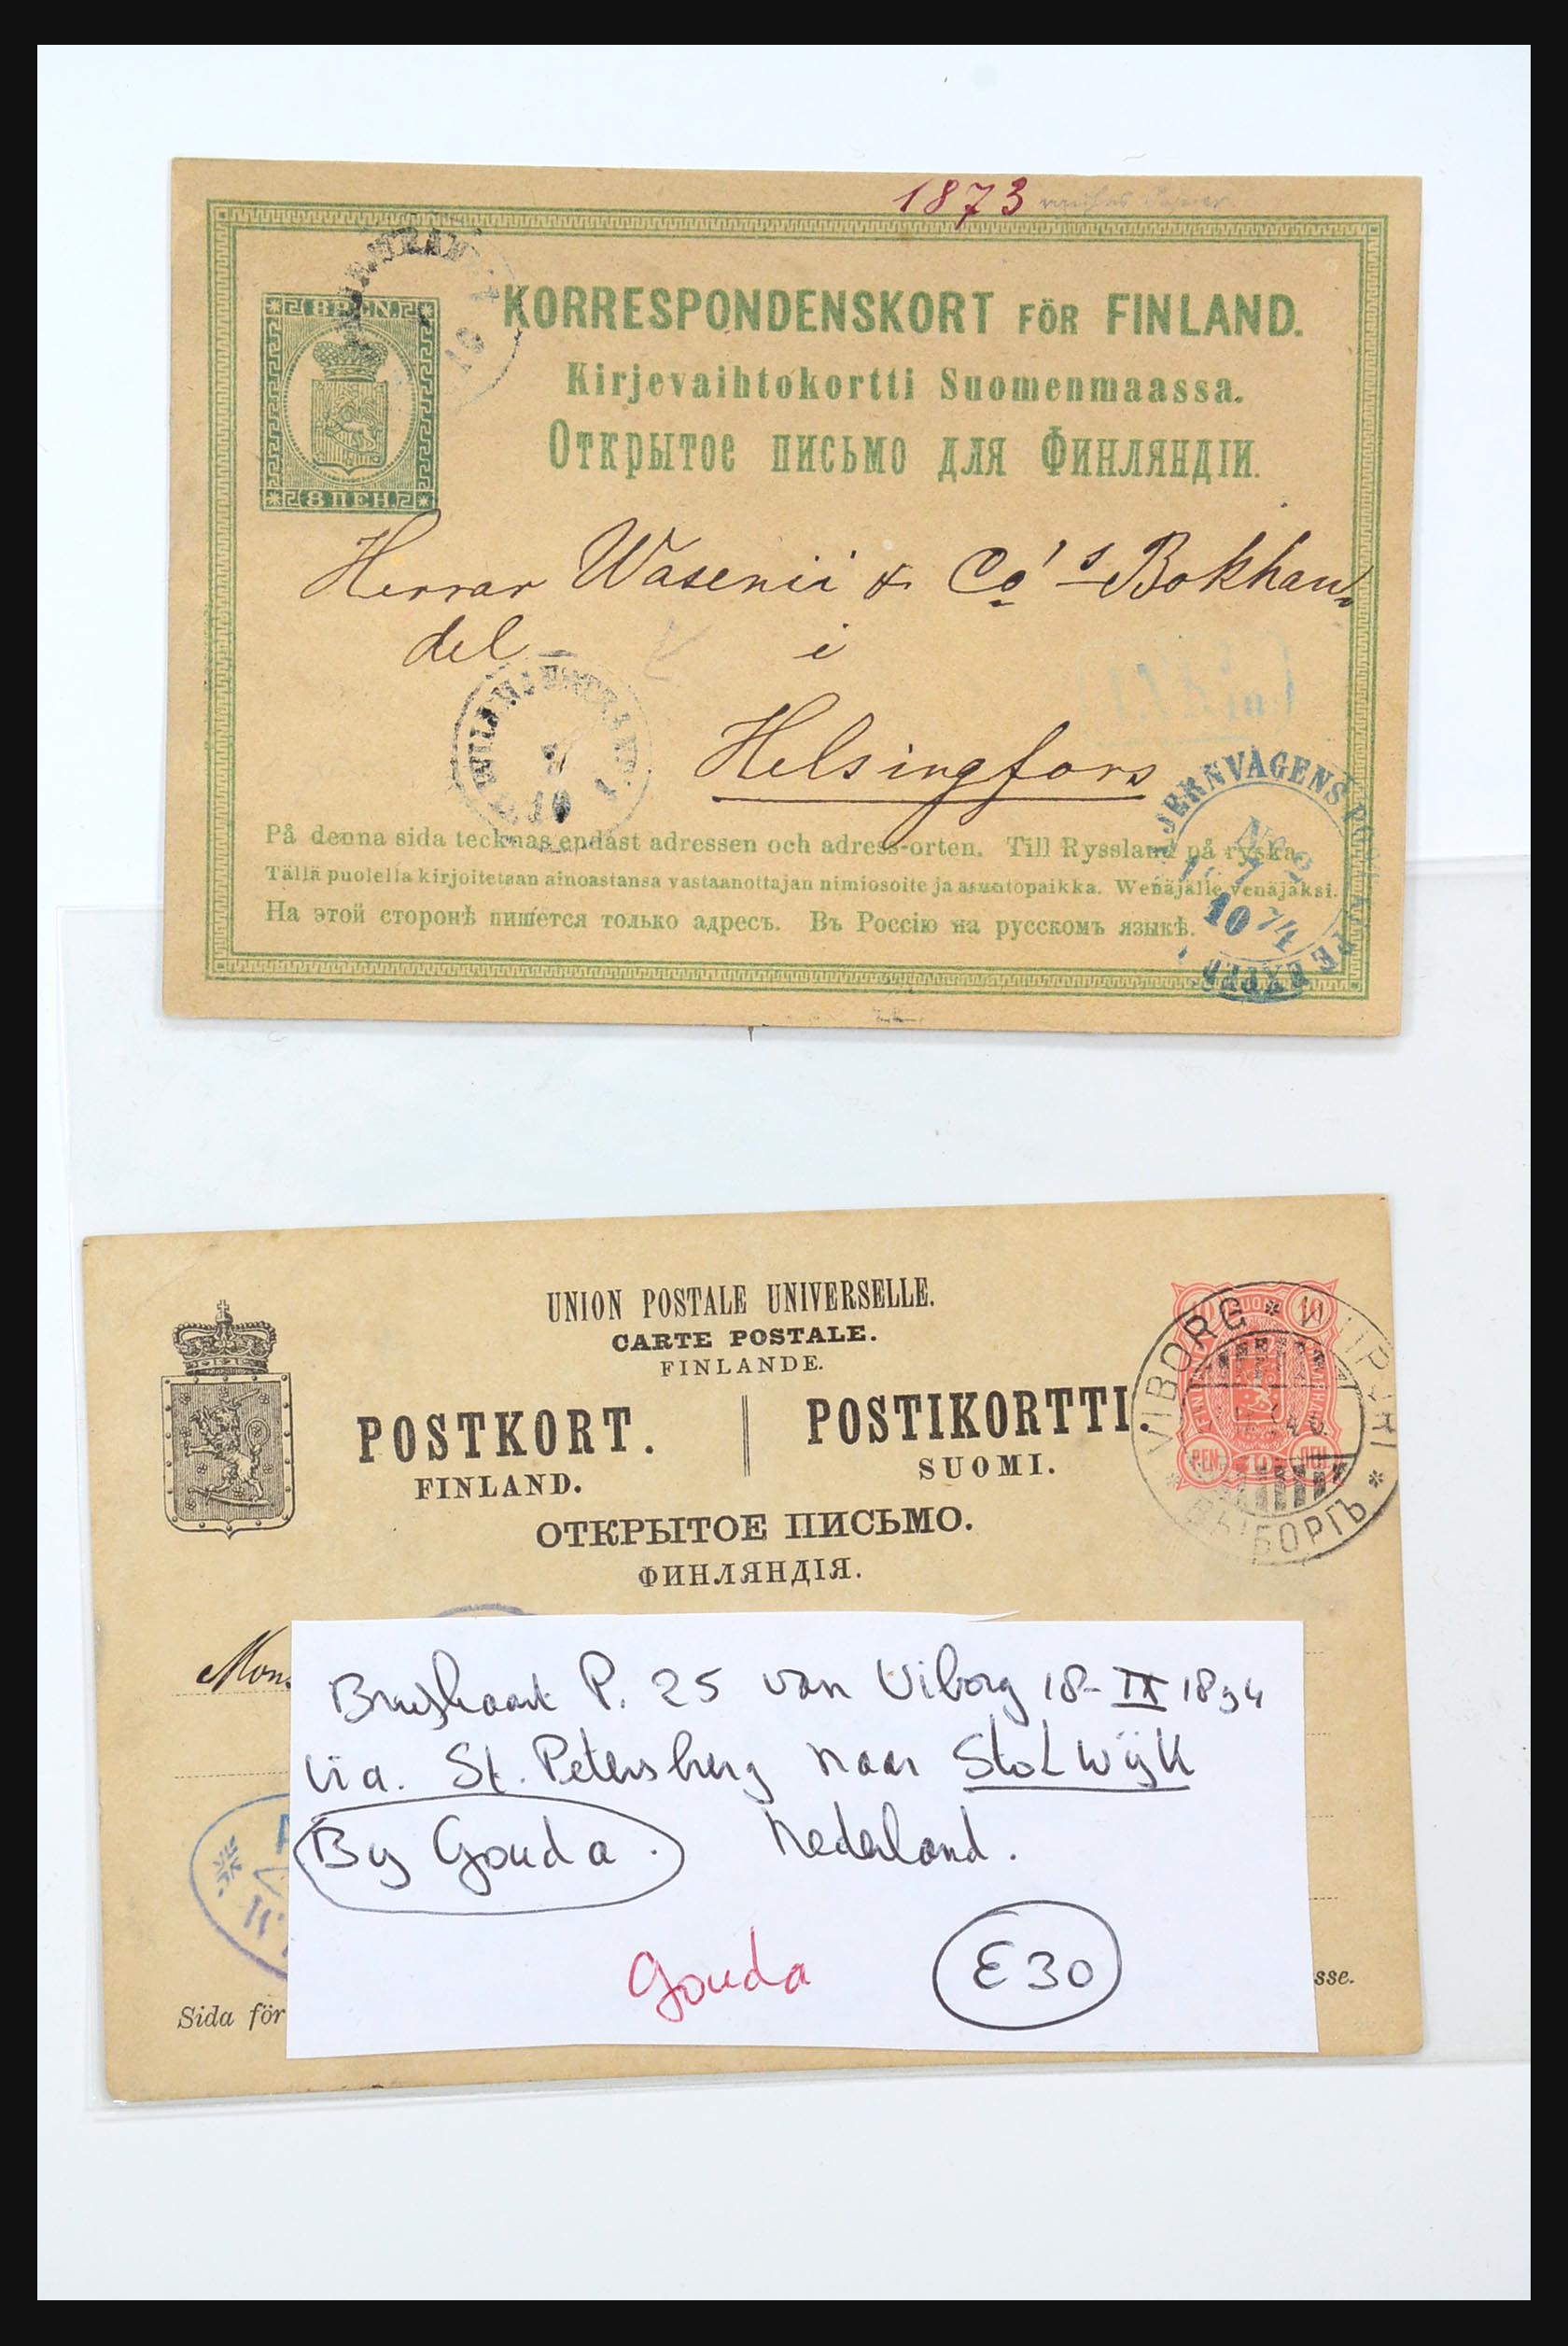 1873
8 PEN.
KORRESPONDENSKORT FÖR FINLAND.
Kirjevaihtokortti Suomenmaassa.
Открытое письмо для Финляндіи.
8 ПЕН.
19
Herrar Wasenii & Co's Bokhan-
del i
Helsingfors
JERNVÄGENS
EXPED
10 74
På denna sida tecknas endast adressen och adress-orten. Till Ryssland på ryska.
Tällä puolella kirjoitetaan ainoastansa vastaanottajan nimiosoite ja asuntopaikka. Wenäjälle venäjäksi.
На этой сторонѣ пишется только адресъ. Въ Россію на русскомъ языкѣ.
UNION POSTALE UNIVERSELLE.
CARTE POSTALE.
FINLANDE.
POSTKORT. POSTIKORTTI.
FINLAND. SUOMI.
ОТКРЫТОЕ ПИСЬМО.
ФИНЛЯНДІЯ.
10 10
PEN. 10 ПЕН.
VIBORG * WIIPURI * ВЫБОРГЪ *
Mons
Briefkaart P. 25 van Viborg 18-IX 1894
via. St. Petersburg naar Stolwijk
By Gouda. Nederland.
Gouda £30
Sida för
sse.